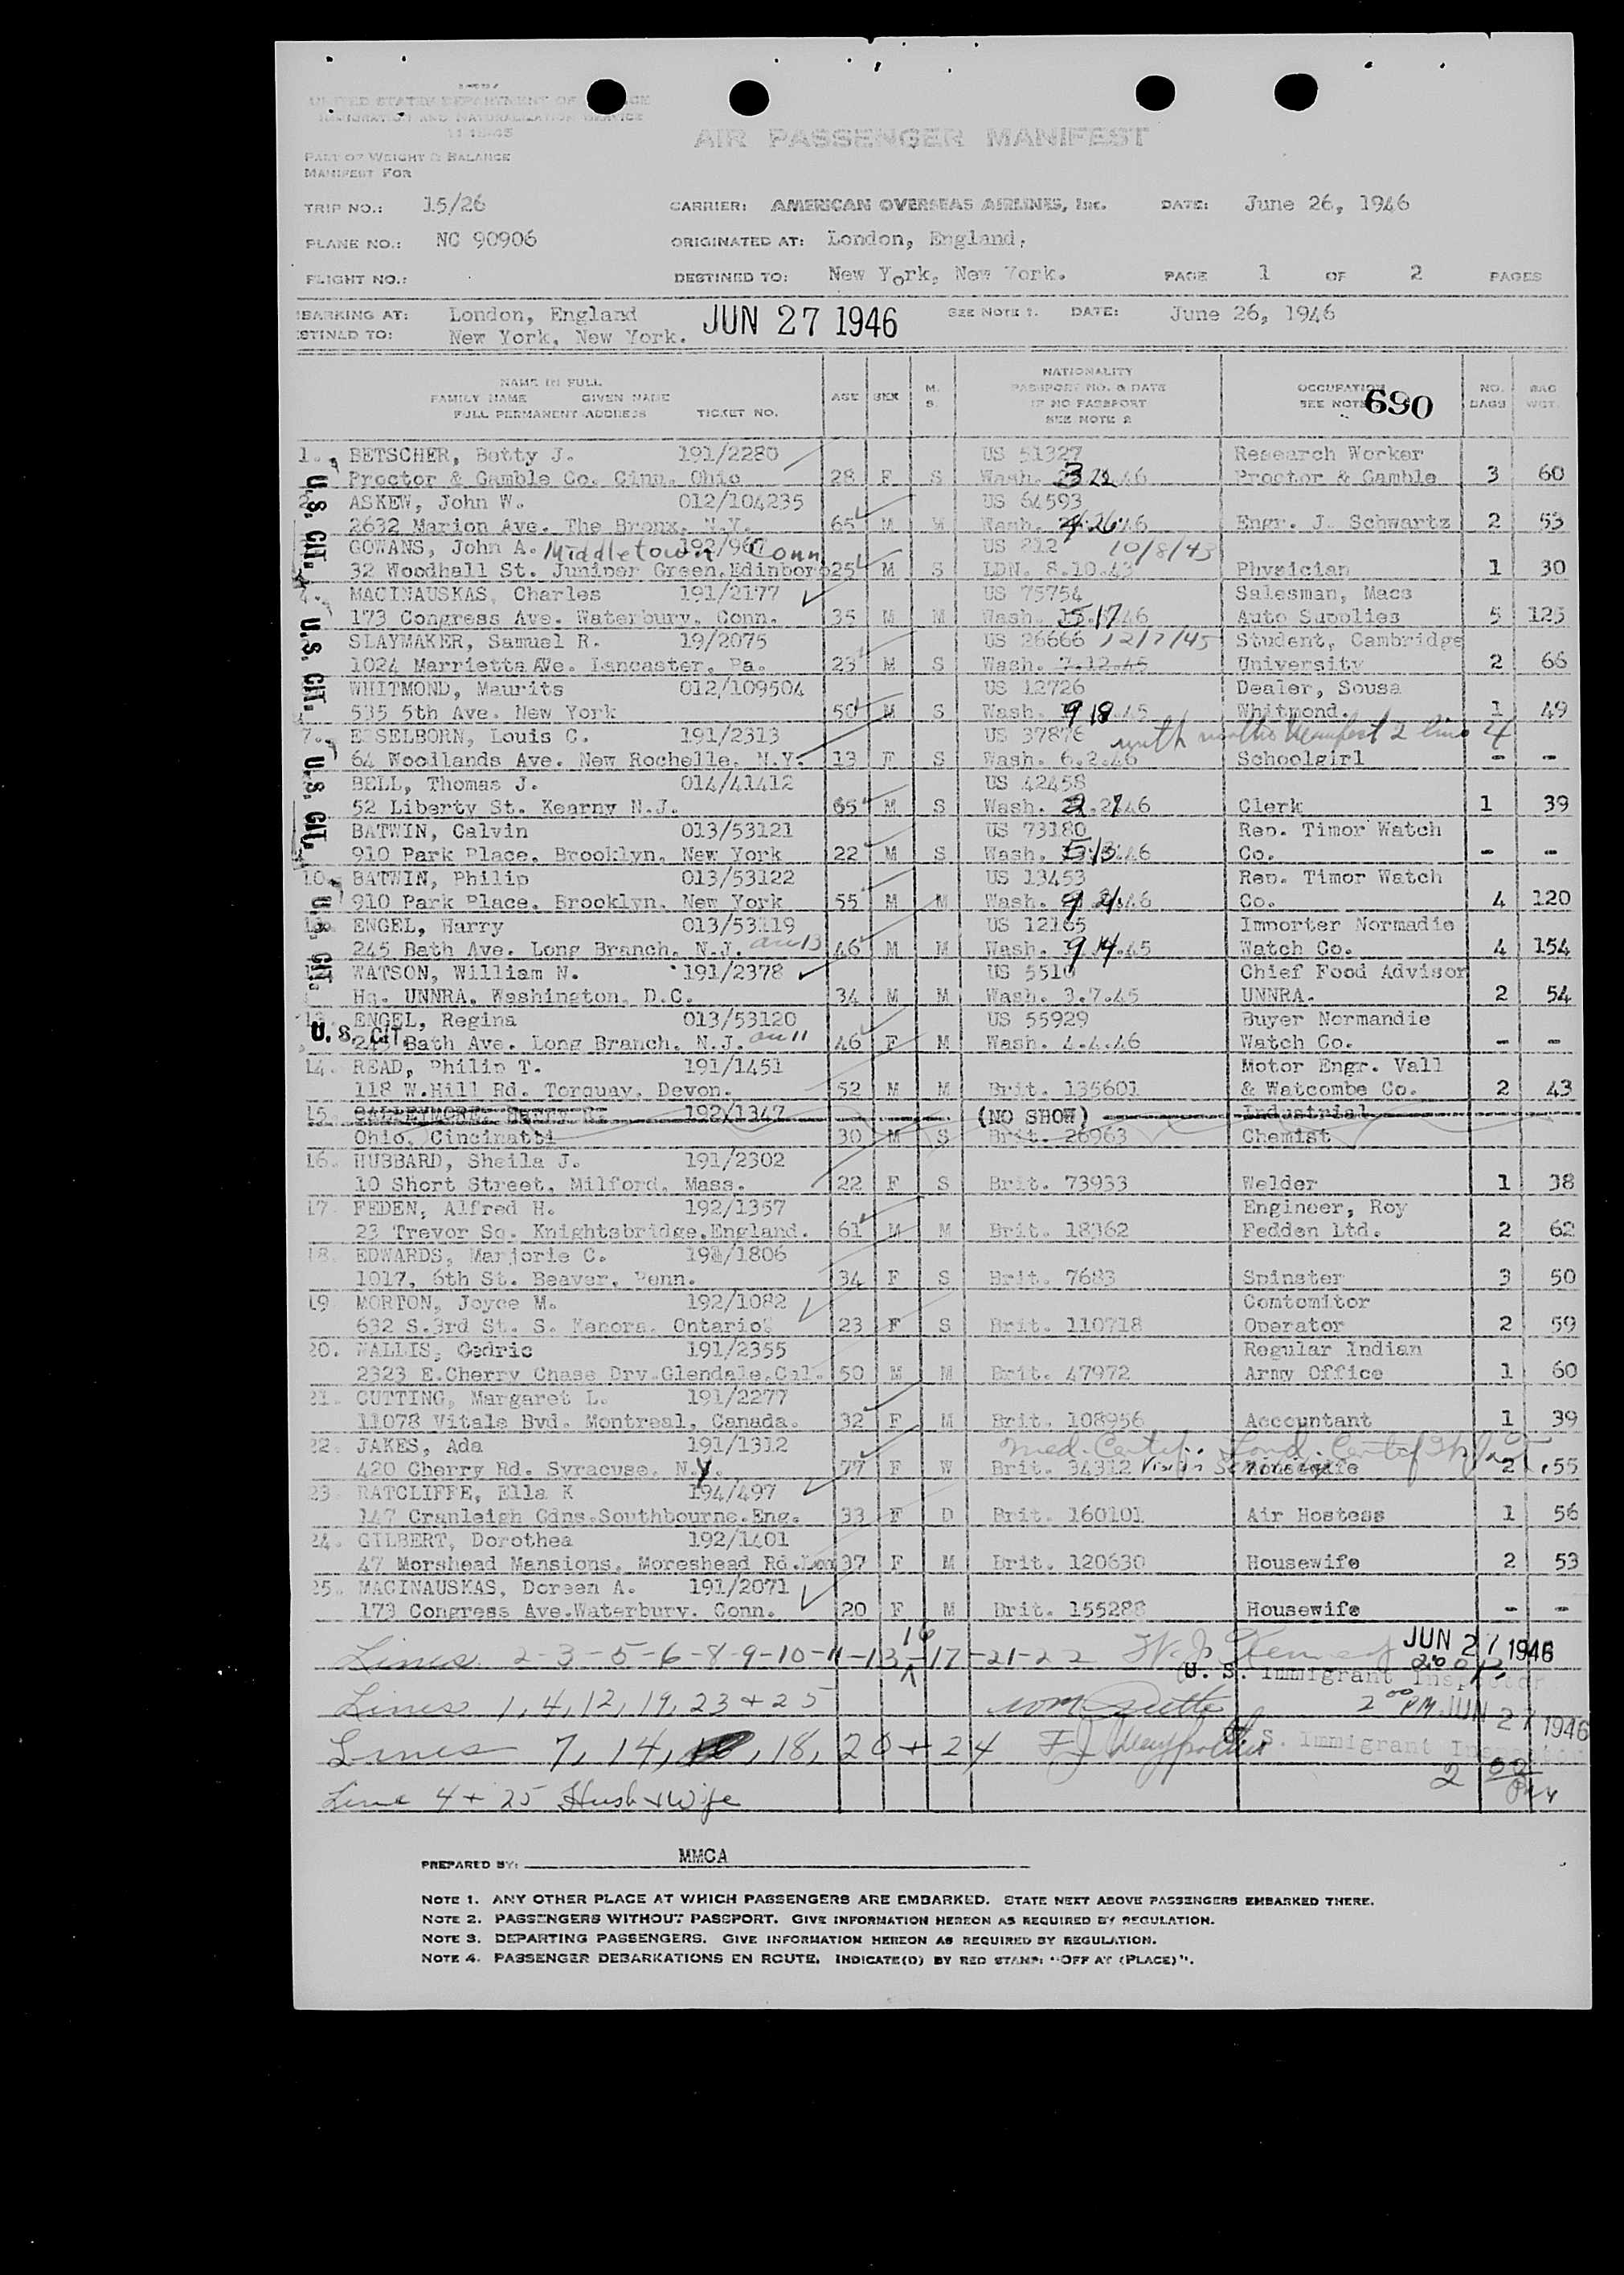 UNITED STATES DEPARTMENT OF
IMMIGRATION AND NATURALIZATION SERVICE
11-15-45
AIR PASSENGER MANIFEST
PART OF WEIGHT & BALANCE
MANIFEST FOR
TRIP NO.: 15/26 CARRIER: AMERICAN OVERSEAS AIRLINES, Inc. DATE: June 26, 1946
PLANE NO.: NC 90906 ORIGINATED AT: London, England,
FLIGHT NO.: DESTINED TO: New York, New York. PAGE 1 OF 2 PAGES
BARKING AT: London, England JUN 27 1946 SEE NOTE 1. DATE: June 26, 1946
STINED TO: New York, New York.
NAME IN FULL
FAMILY NAME GIVEN NAME
FULL PERMANENT ADDRESS TICKET NO.
AGE SEX M. S.
NATIONALITY
PASSPORT NO. & DATE
IF NO PASSPORT
SEE NOTE 2
OCCUPATION
SEE NOTE 690
NO. BAGS BAG WGT.
1. BETSCHER, Betty J. 191/2280 US 51327 Research Worker
Proctor & Gamble Co. Cinn. Ohio 28 F S Wash. 46 Proctor & Gamble 3 60
ASKEW, John W. 012/104235 US 64593
2632 Marion Ave. The Bronx. N.Y. 65 M W Wash. 46 Engr. J. Schwartz 2 53
GOWANS, John A. Middletown Conn US 212 10/8/43
32 Woodhall St. Juniper Green.Edinboro 25 M S LDN. 8.10.43 Physician 1 30
4. MACINAUSKAS, Charles 191/2177 US 75754 Salesman, Macs
173 Congress Ave. Waterbury. Conn. 35 M M Wash. 5.17.46 Auto Supplies 5 125
SLAYMAKER, Samuel R. 19/2075 US 26666 12/7/45 Student, Cambridge
1024 Marrietta AVe. Lancaster, Pa. 23 M S Wash. 7.12.45 University 2 66
WHITMOND, Maurits 012/109504 US 12726 Dealer, Sousa
535 5th Ave. New York 50 M S Wash. 9 18.45 Whitmond. 1 49
7. ESSELBORN, Louis C. 191/2313 US 37876 with mother Manifest 2 line 4
64 Woodlands Ave. New Rochelle. N.Y. 13 F S Wash. 6.2.46 Schoolgirl - -
BELL, Thomas J. 014/41412 US 42458
52 Liberty St. Kearny N.J. 65 M S Wash. 46 Clerk 1 39
BATWIN, Calvin 013/53121 US 73180 Rep. Timor Watch
910 Park Place. Brooklyn. New York 22 M S Wash. 46 Co. - -
10. BATWIN, Philip 013/53122 US 13453 Rep. Timor Watch
910 Park Place. Brooklyn. New York 55 M M Wash. 46 Co. 4 120
ENGEL, Harry 013/53119 US 12165 Importer Normadie
245 Bath Ave. Long Branch. N.J. 46 M M Wash. 9 14.45 Watch Co. 4 154
WATSON, William N. 191/2378 US 5510 Chief Food Advisor
Hq. UNNRA. Washington. D.C. 34 M M Wash. 3.7.45 UNNRA. 2 54
13. ENGEL, Regina 013/53120 US 55929 Buyer Normandie
245 Bath Ave. Long Branch. N.J. 46 F M Wash. 4.4.46 Watch Co. - -
U.S. CIT.
U.S. CIT.
U.S. CIT.
U.S. CIT.
U.S. CIT.
14. READ, Philip T. 191/1451 Motor Engr. Vall
118 W.Hill Rd. Torquay. Devon. 52 M M Brit. 135601 & Watcombe Co. 2 43
15. 192/1347 (NO SHOW) Industrial
Ohio. Cincinatti 30 M S Brit. 26963 Chemist
16. HUBBARD, Sheila J. 191/2302
10 Short Street. Milford. Mass. 22 F S Brit. 73933 Welder 1 38
17. FEDEN, Alfred H. 192/1357 Engineer, Roy
23 Trevor Sq. Knightsbridge.England. 61 M M Brit. 18362 Fedden Ltd. 2 62
18. EDWARDS, Marjorie C. 191/1806
1017, 6th St. Beaver, Penn. 34 F S Brit. 7683 Spinster 3 50
19. MORTON, Joyce M. 192/1082 Comtomitor
632 S.3rd St. S. Kenora. Ontario. 23 F S Brit. 110718 Operator 2 59
20. WALLIS, Cedric 191/2355 Regular Indian
2323 E.Cherry Chase Drv.Glendale.Cal. 50 M M Brit. 47972 Army Office 1 60
21. CUTTING, Margaret L. 191/2277
11078 Vitale Bvd. Montreal, Canada. 32 F M Brit. 108956 Accountant 1 39
22. JAKES, Ada 191/1312 Med. Certif.
420 Cherry Rd. Syracuse. N.Y. 77 F W Brit. 34312 Housewife 2 55
23. RATCLIFFE, Ella K 194/497
147 Cranleigh Gdns.Southbourne.Eng. 33 F D Brit. 160101 Air Hostess 1 56
24. GILBERT, Dorothea 192/1401
47 Morshead Mansions. Moreshead Rd.Lon 37 F M Brit. 120630 Housewife 2 53
25. MACINAUSKAS, Doreen A. 191/2071
173 Congress Ave.Waterbury. Conn. 20 F M Brit. 155288 Housewife - -
Lines 2-3-5-6-8-9-10-11-13-16-17-21-22 JUN 27 1946
U. S. Immigrant Inspector
Lines 1, 4, 12, 19, 23 + 25 2 00 PM JUN 27 1946
Lines 7, 14, 18, 20 + 24 U. S. Immigrant Inspector
Line 4 + 25 Husb & Wife 2 00 PM
PREPARED BY: MMCA
NOTE 1. ANY OTHER PLACE AT WHICH PASSENGERS ARE EMBARKED. STATE NEXT ABOVE PASSENGERS EMBARKED THERE.
NOTE 2. PASSENGERS WITHOUT PASSPORT. GIVE INFORMATION HEREON AS REQUIRED BY REGULATION.
NOTE 3. DEPARTING PASSENGERS. GIVE INFORMATION HEREON AS REQUIRED BY REGULATION.
NOTE 4. PASSENGER DEBARKATIONS EN ROUTE. INDICATE(D) BY RED STAMP: "OFF AT (PLACE)".